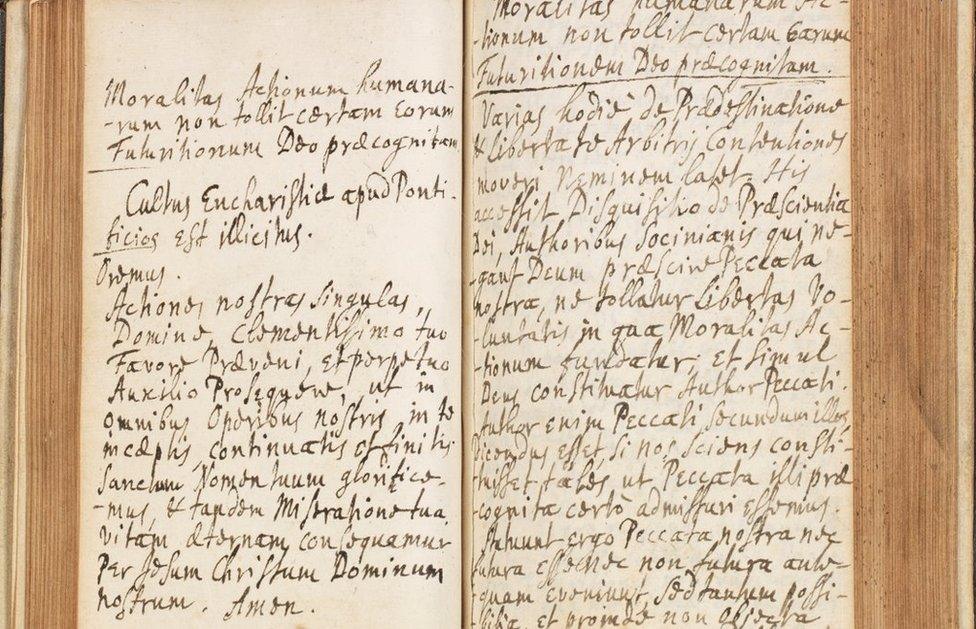 Moralitas Actionum humana-
-rum non tollit certam Eorum
Futuritionum Deo præcognitam
Cultus Eucharistiæ apud Ponti-
ficios Est illicitus.
Oremus.
Actiones nostras singulas,
Domine, Clementissimo tuo
Favore Præveni, et perpetuo
Auxilio Prosequere, ut in
omnibus Operibus nostris in te
incæptis, continuatis et finitis
Sanctum Nomen tuum glorifice-
-mus, & tandem Miseratione tua
vitam æternam consequamur
Per Jesum Christum Dominum
nostrum. Amen.
Moralitas humanarum Ac-
-tionum non tollit certam Earum
Futuritionem Deo præcognitam.
Varias hodiè de Prædestinatione
& libertate Arbitrij Contentiones
moveri Neminem latet. His
accessit Disquisitio de Præscientia
Dei, Authoribus Socinianis qui ne-
-gant Deum præscire Peccata
nostra, ne tollatur Libertas Vo-
-luntatis in qua Moralitas Ac-
-tionum fundatur, et simul
Deus constituatur Author Peccati.
Author enim Peccati, secundum illos,
Dicendus esset, si nos sciens consti-
-tuisset tales ut Peccata illi præ
-cognita certò admissuri essemus.
Statuunt ergo Peccata nostra nec
futura esse nec non futura ante-
-quam eveniunt, sed tantum possi-
-bilia, et proinde non objecta